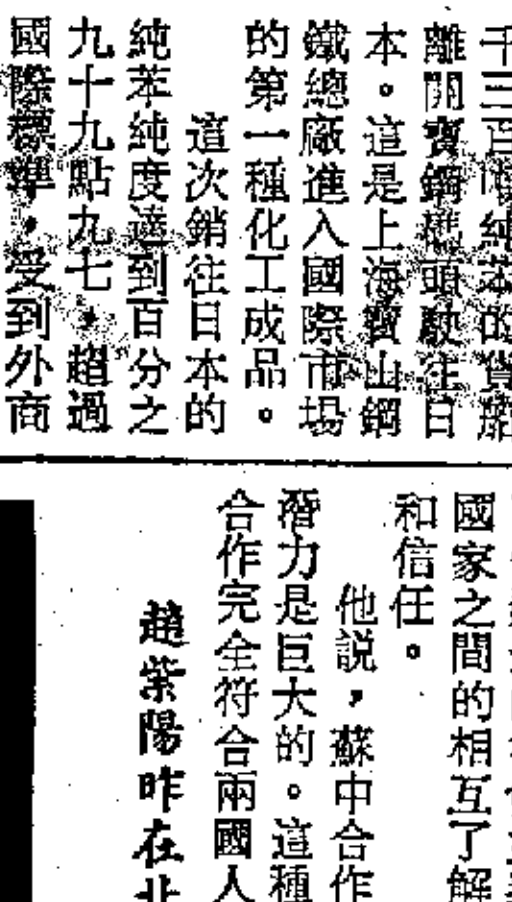 千三百噸純苯的貨船
離開寶鋼碼頭駛往日
本。這是上海寶山鋼
鐵總廠進入國際市場
的第一種化工成品。
這次銷往日本的
純苯純度達到百分之
九十九點九七，超過
國際標準，受到外商
國家之間的相互了解
和信任。
他説，蘇中合作
潛力是巨大的。這種
合作完全符合兩國人
趙紫陽昨在北